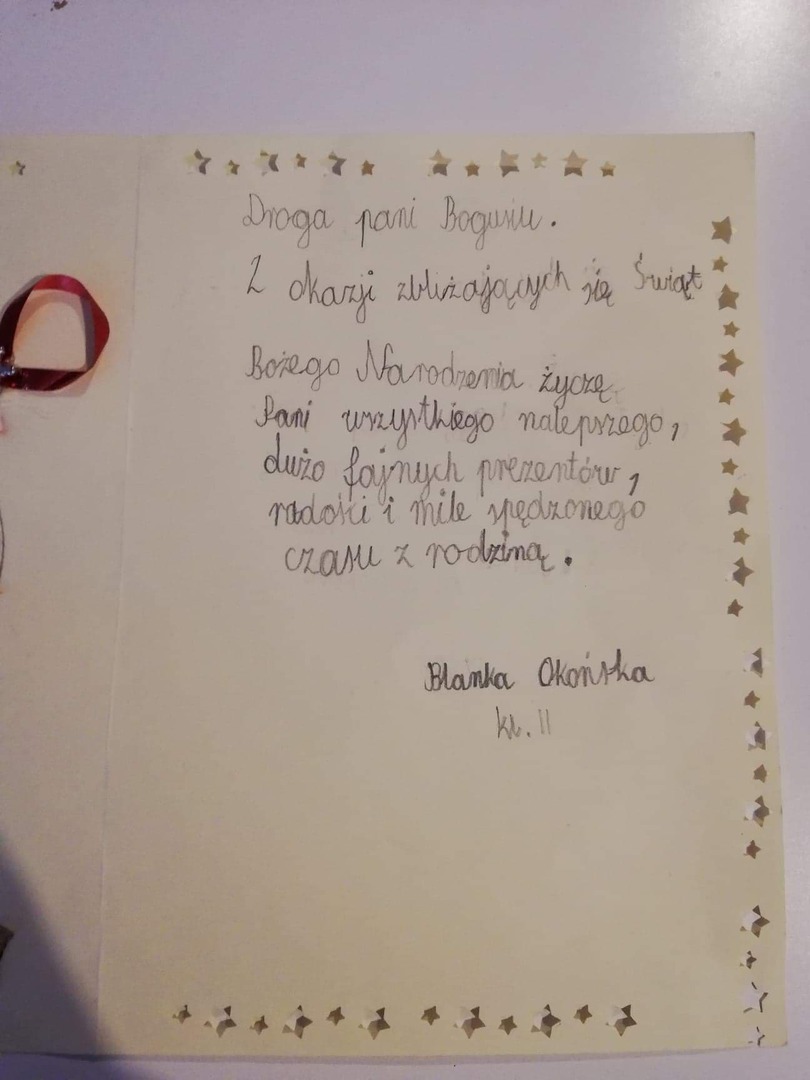 Droga pani Bogusiu.
Z okazji zbliżających się Świąt
Bożego Narodzenia życzę
Pani wszystkiego nalepszego,
dużo fajnych prezentów,
radości i mile spędzonego
czasu z rodziną.
Blanka Okońska
kl. II